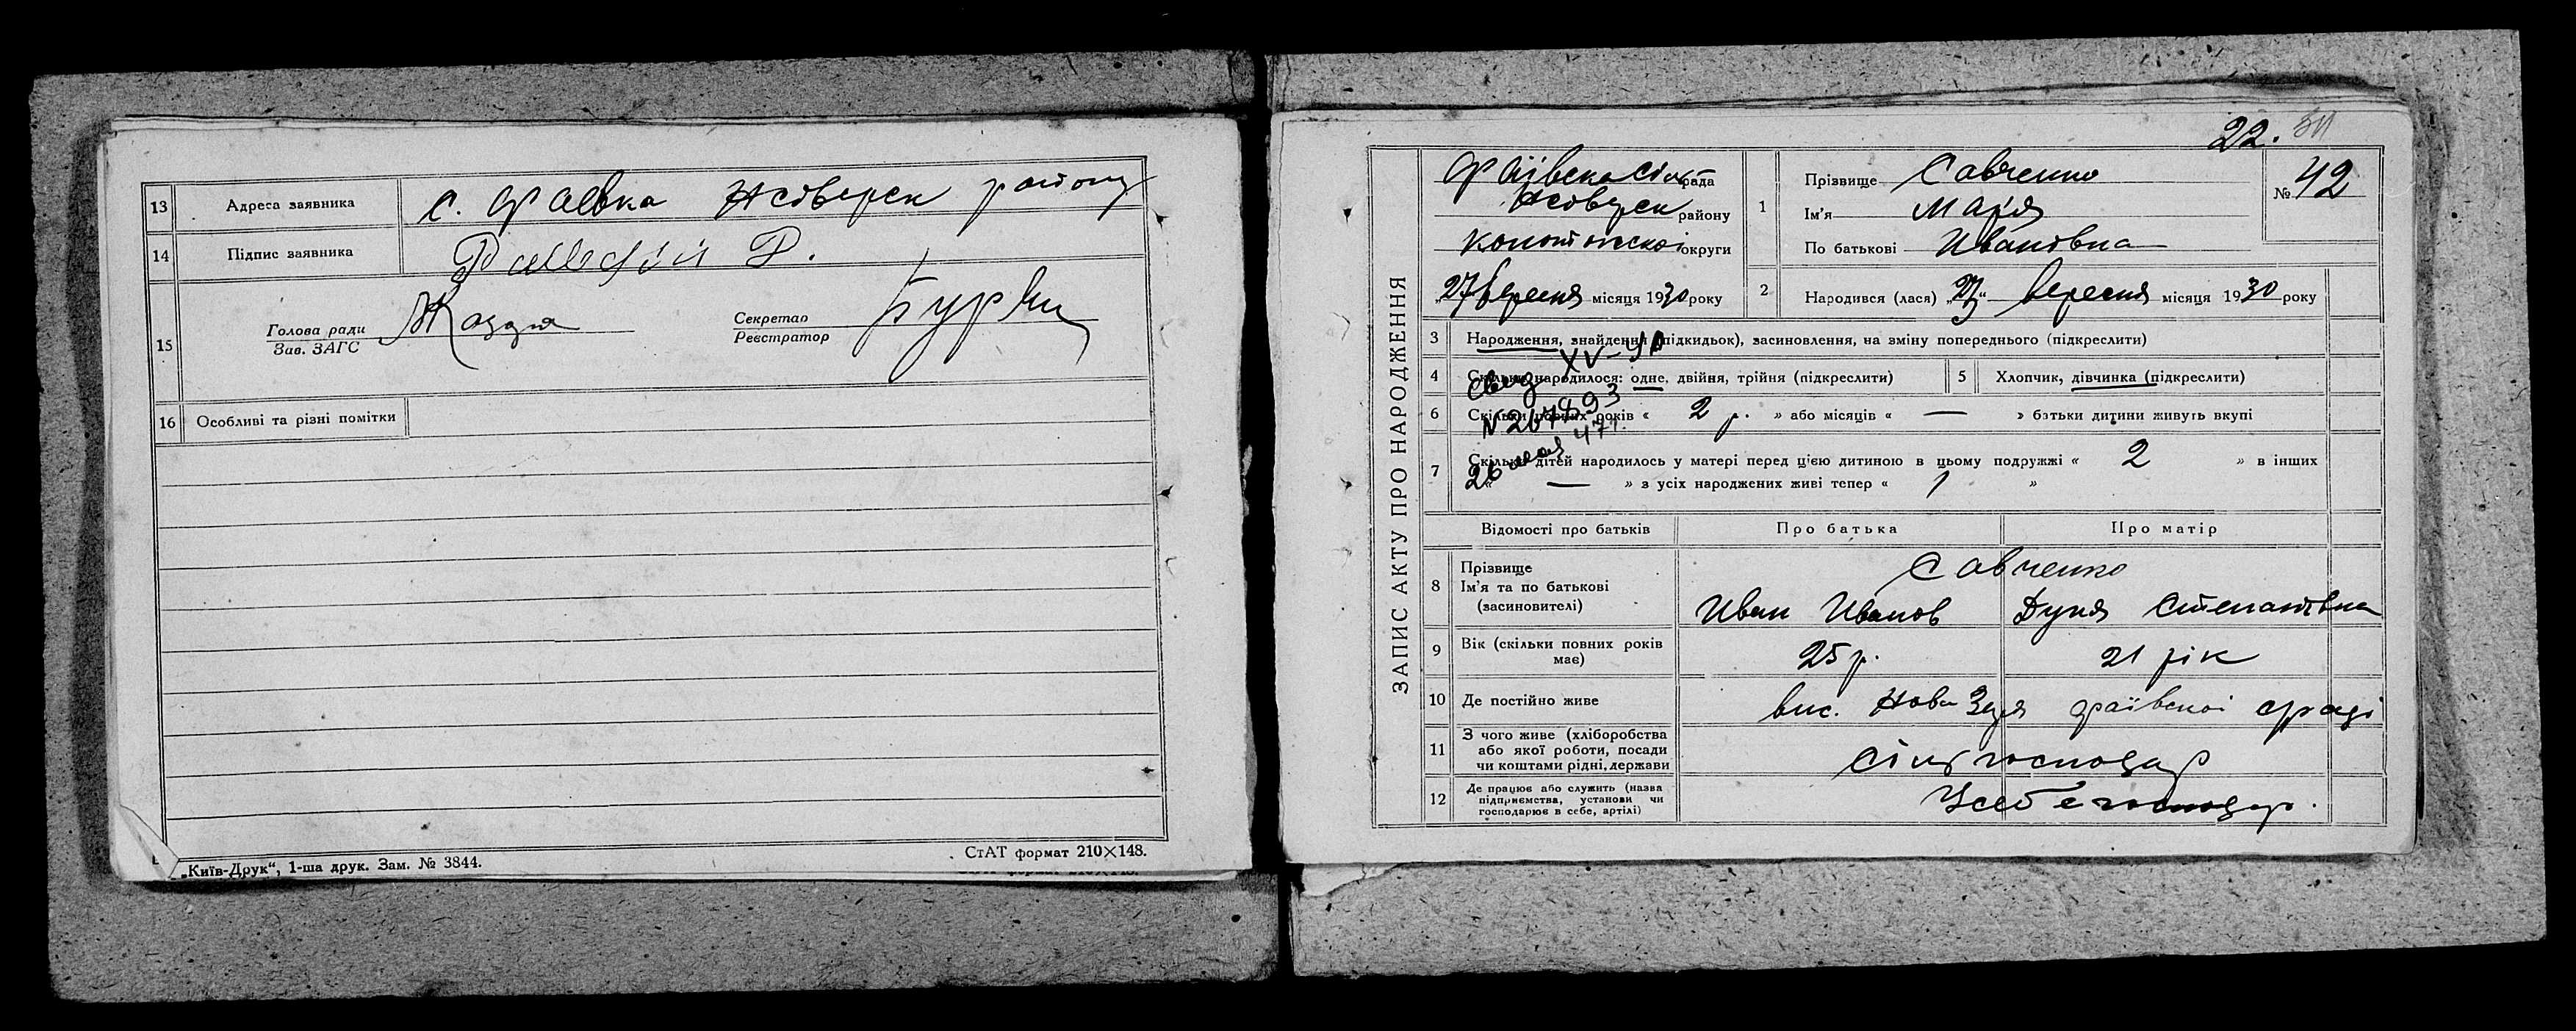 13 Адреса заявника с. Фаєвка Н сіверск району
14 Підпис заявника
15 Голова ради
Зав. ЗАГС
Секретар
Реєстратор
16 Особливі та різні помітки
„Київ-Друк“, 1-ша друк. Зам. № 3844.
СтАТ формат 210×148.
22.
ЗАПИС АКТУ ПРО НАРОДЖЕННЯ
Фаївска сіль рада
Н сіверск району
Конотопскої округи
„27 вересня місяця 1930 року
1 Прізвище Савченко
Ім'я Марія
По батькові Ивановна
№ 42
2 Народився (лася) „ “ вересня місяця 1930 року
3 Народження, знайдення (підкидьок), засиновлення, на зміну попереднього (підкреслити)
4 Скільки народилося: одне, двійня, трійня (підкреслити) 5 Хлопчик, дівчинка (підкреслити)
6 Скільки повних років « 2 р. » або місяців « — » батьки дитини живуть вкупі
7 Скільки дітей народилось у матері перед цією дитиною в цьому подружжі « 2 » в інших
« — » з усіх народжених живі тепер « 1 »
Свид
№ 267893
26 мая 47 г.
Відомості про батьків Про батька Про матір
8 Прізвище
Ім'я та по батькові
(засиновителі)
Савченко
Иван Иванов Дуня Степановна
9 Вік (скільки повних років
має)
25 р. 21 рік
10 Де постійно живе вис. Нова Фаївскої с/раді
11 З чого живе (хліборобства
або якої роботи, посади
чи коштами рідні, держави
сільгосподар
12 Де працює або служить (назва
підприємства, установи чи
господарює в себе, артілі)
У себе господар.